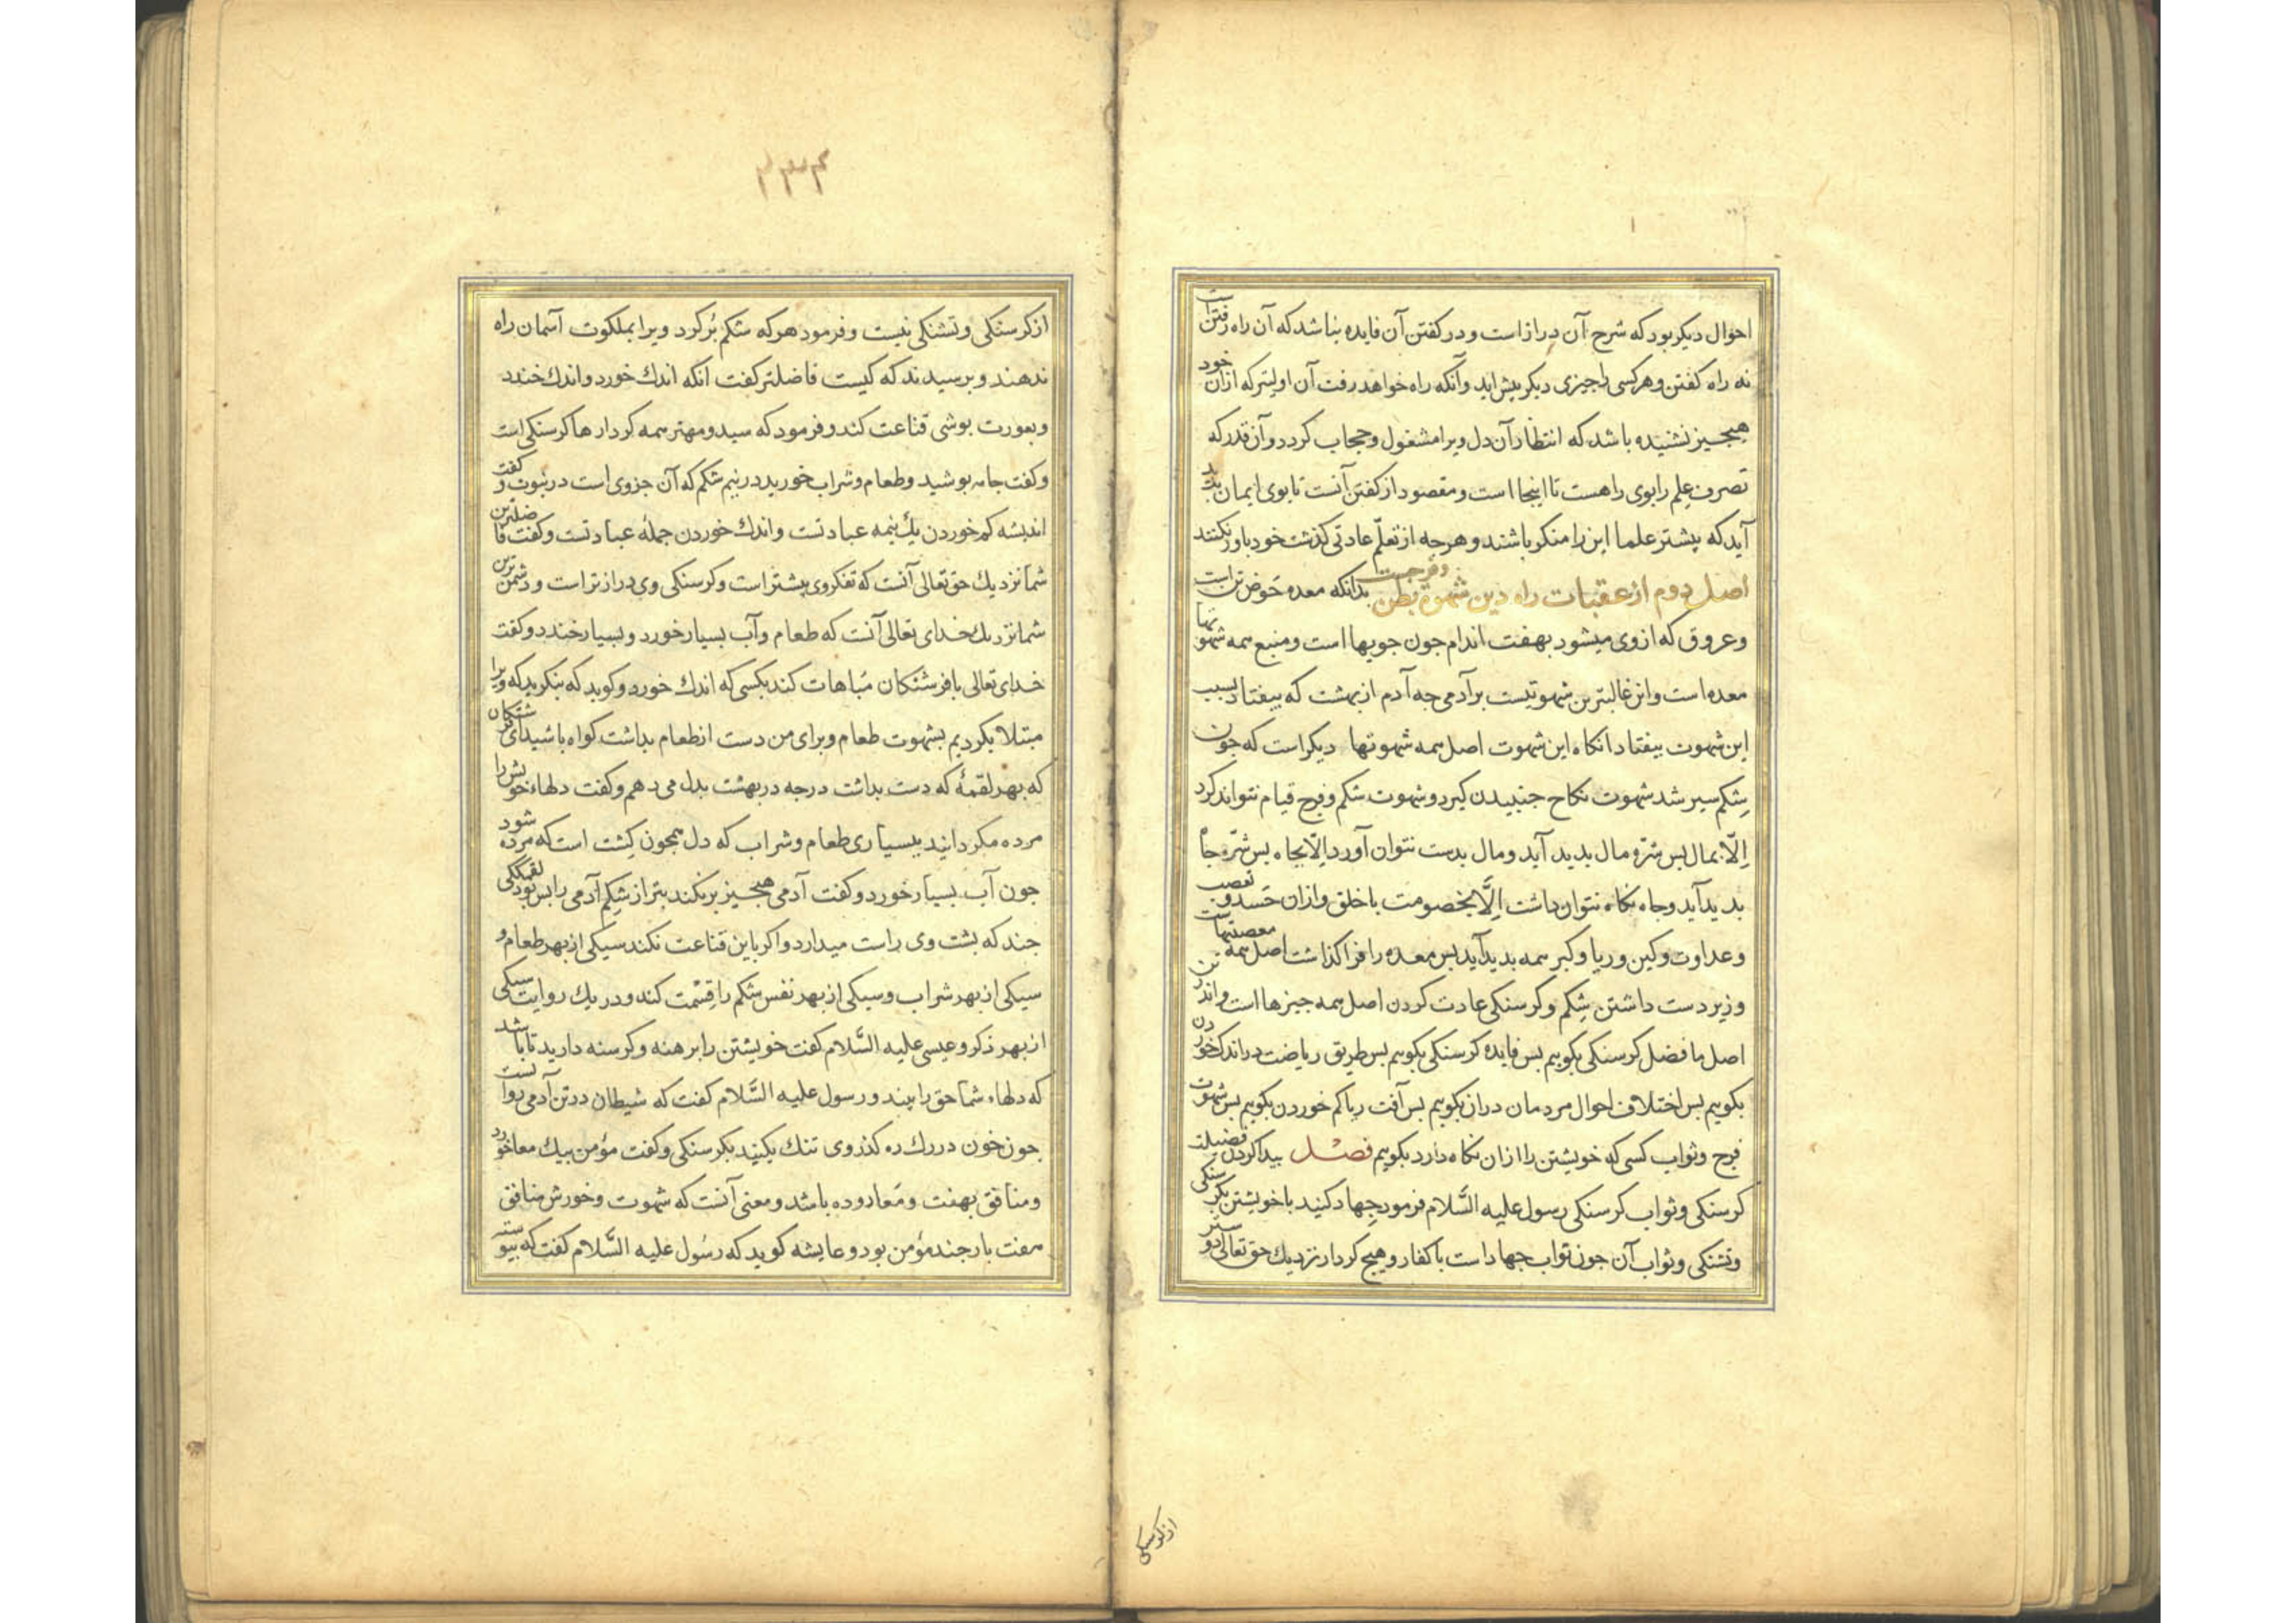 احوال دیکر بود که شرح آن درازاست و در کفتن آن فایده نباشد که آن راه رفتن است
نه راه کفتن و هر کسی را جیزی دیکر پیش اید و آنکه راه خواهد رفت آن اولیتر که ازان خود
هیجیز نشنیده باشد که انتظار آن دل ویرا مشغول و حجاب کردد و آن قدر که
تصرف علم را بوی راهست تا اینجا است و مقصود از کفتن آنست تا بوی ایمان بدید
آید که بیشتر علما این را منکر باشند و هرجه از تعلّم عادتی کذشت خود باور نکنند
اصل دوم از عقبات راه دین شهوة بطن و فرجست بدانکه معده حوض تن است
و عروق که ازوی میشود بهفت اندام جون جویها است و منبع همه شهوتها
معده است واین غالبترین شهوتیست بر آدمی جه آدم از بهشت که بیفتاد بسبب
این شهوت بیفتاد انکاه این شهوت اصل همه شهوتها دیکر است که جون
شِکم سیر شد شهوت نکاح جنبیدن کیرد و شهوت شکم و فرج قیام نتواند کرد
اِلّا بمال بس شَرَه مال بدید آید و مال بدست نتوان آورد اِلّا بجاه بس شَرَه جاه
بدید آید و جاه نکاه نتوان داشت اِلَّا بخصومت با خلق وازان حَسَد و تعصب
و عداوت و کین و ریا و کبر همه بدید آید بس معده را فرا کذاشتن اصل همه معصیتهاست
و زیردست داشتن شِکم و کرسنکی عادت کردن اصل همه جیزها است و اندر
اصل ما فضل کرسنکی بکویم بس فایده کرسنکی بکویم بس طریق ریاضت در اندک خوردن
بکویم بس اختلاف احوال مردمان دران بکویم بس آفت ریا کم خوردن بکویم بس شهوت
فرج و ثواب کسی که خویشتن را ازان نکاه دارد بکویم فصْل بیدا کردن فضیلت
کرسنکی و ثواب کرسنکی رسول علیه السَّلام فرمود جِهاد کنید با خویشتن بکرسنکی
و تشنکی و ثواب آن جون ثواب جهاد است با کفار و هیج کردار نزدیک حق تعالی دوستر
از کرسنکی
۲۳۴
از کرسنکی و تشنکی نیست و فرمود هرکه شکم بُر کرد ویرا بملکوت آسمان راه
ندهند و برسیدند که کیست فاضلتر کفت انکه اندک خورد و اندک خندد
و بعورت بوشی قناعت کند و فرمود که سید و مهتر همه کردارها کرسنکی است
و کفت جامه بوشید و طعام و شراب خورید در نیم شکم که آن جزوی است در نبوت و کفت
اندیشه کم خوردن یک نیمه عبادتست و اندک خوردن جملهٔ عبادتست و کفت فاضلترین
شما نزدیک حق تعالی آنست که تفکر وی بیشتر است و کرسنکی وی درازتر است و دشمن ترین
شما نزدیک خدای تعالی آنست که طعام و آب بسیار خورد و بسیار خندد و کفت
خدای تعالی با فرشتکان مُباهات کند بکسی که اندک خورد و کوید که بنکرید که ویرا
مبتلا بکردیم بشهوت طعام و برای من دست از طعام بداشت کواه باشید ای فرشتکان
که بهر لقمهٔ که دست بداشت درجه در بهشت بدل می دهم و کفت دلهاء خویش را
مرده مکردانید ببسیاری طعام و شراب که دل همجون کِشت است که مرده شود
جون آب بسیار خورد و کفت آدمی هیجیز بر نکند بتر از شِکم آدمی را بس بود لقمککی
جند که بشت وی راست میدارد و اکر باین قناعت نکند سیکی از بهر طعام و
سیکی از بهر شراب و سیکی از بهر نفس شکم را قِسْمت کند و در یک روایت سیکی
از بهر ذکر و عیسی علیه السَّلام کفت خویشتن را برهنه و کرسنه دارید تا باشد
که دلهاء شما حق را بیند و رسول علیه السَّلام کفت که شیطان در تن آدمی روانست
جون خون در رک ره کذر وی تنک بکنید بکرسنکی و کفت مؤمن بیک معا خورد
و منافق بهفت و مَعا روده باشد و معنی آنست که شهوت و خورش منافق
هفت بار جند مؤمن بود و عایشه کوید که رسُول علیه السَّلام کفت که بیوسته